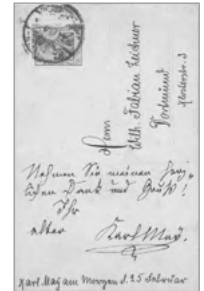 Herrn
Wilh. Fabian Leichner
Dortmund
Klosterstr. 3
Nehmen Sie meinen herz-
lichen Dank und Gruß!
Ihr
alter
Karl May.
Karl May am Morgen d. 25 Februar